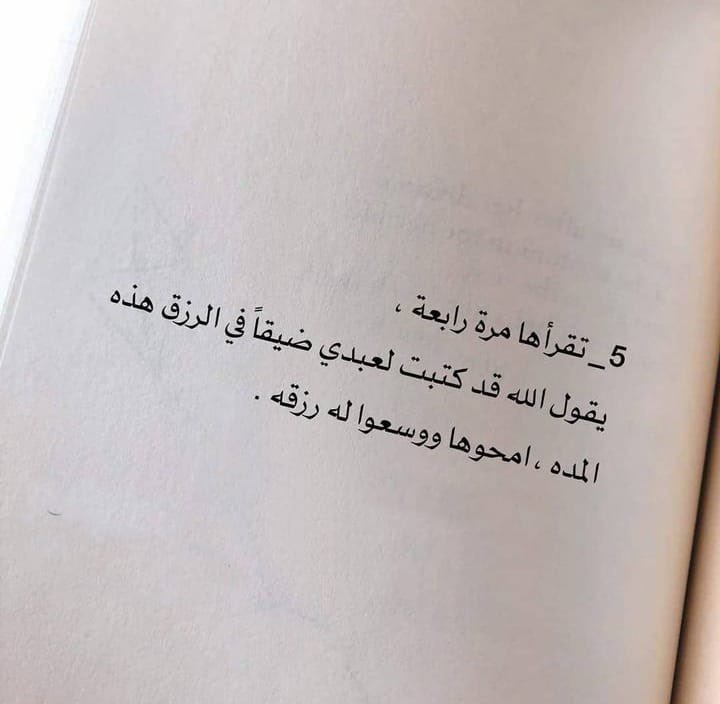 5_ تقرأها مرة رابعة ،
يقول الله قد كتبت لعبدي ضيقاً في الرزق هذه
المده ، امحوها ووسعوا له رزقه .